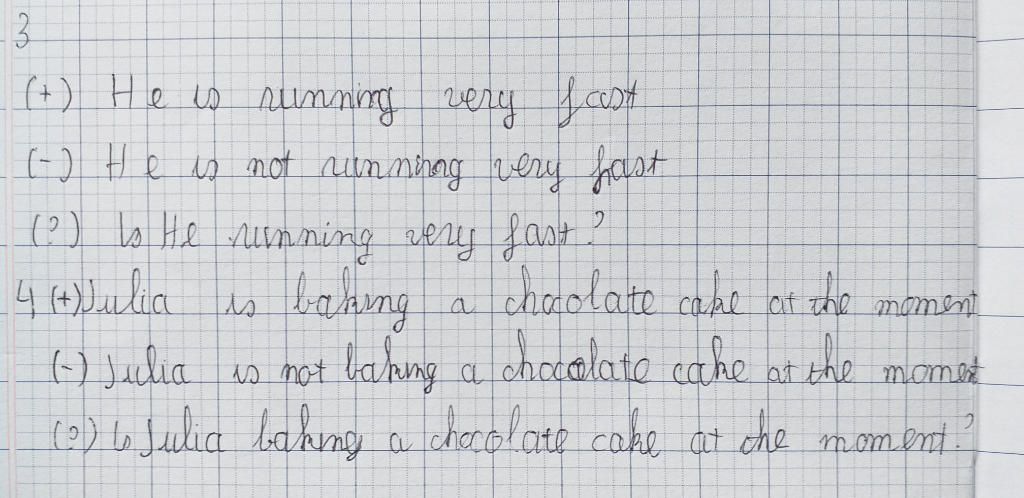 3
(+) He is running very fast
(-) He is not running very fast
(?) Is He running very fast?
4 (+) Julia is baking a chocolate cake at the moment
(-) Julia is not baking a chocolate cake at the moment
(?) Is Julia baking a chocolate cake at the moment?